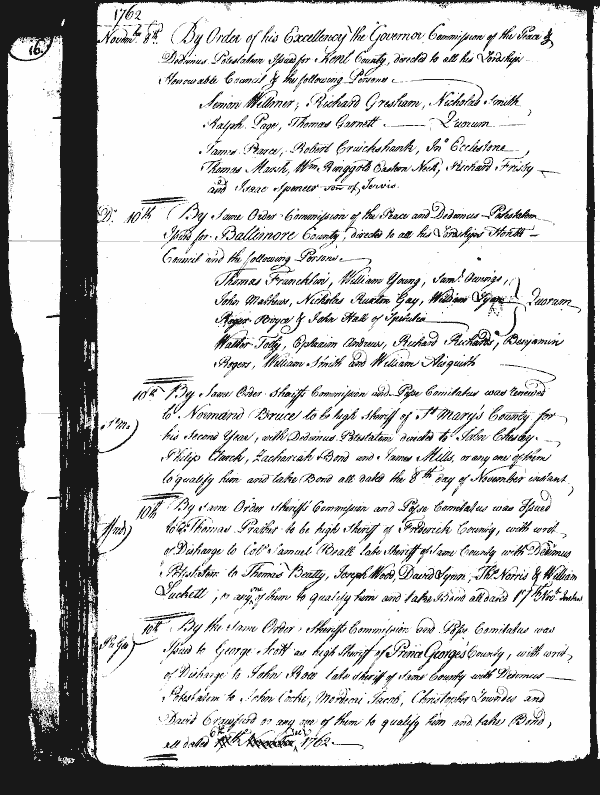 1762
16.
Novem.br 8th. By Order of his Excellency the Governor Commission of the Peace &
Dedimus Potestatem Issued for Kent County, directed to all his Lordships
Honourable Council & the following Persons
Simon Wilmer, Richard Gresham, Nicholas Smith
Ralph Page, Thomas Garnett Quorum
James Pearce, Robert Cruickshank, Jno. Ecclestone
Thomas Marsh, Wm Ringgold Eastern Neck, Richard Frisby
and Isaac Spencer son of Jervis.
Do. 10th By Same Order Commission of the Peace and Dedimus Potestatem
Issued for Baltimore County, directed to all his Lordships Honble
Council and the following Persons
Thomas Franklin, William Young, Saml. Owings,
John Mathews, Nicholas Ruxton Gay, William Quorum
Roger Boyce & John Hall of
Walter Tolly, Ephraim Andrews, Richard Richards, Benjamin
Rogers, William Smith and William Aisquith
10th By Same Order Sheriffs Commission and Posse Comitatus was renewed
St. Ma) to Normand Bruce to be high Sheriff of St Mary's County for
his Second Year, with Dedimus Potestatem directed to John Chesley
Philip Clarck, Zachariah Bond and James Mills, or any one of them
to qualify him and take Bond all dated the 8th day of November instant
10th By Same Order Sheriffs Commission and Posse Comitatus was Issued
Fred) to Thomas Prather to be high Sheriff of Frederick County, with writ
of Discharge to Collo. Samuel Beall late Sheriff of Same County with Dedimus
Potestatem to Thomas Beatty, Joseph Wood, David Lynn, Thos. Norris & William
Luckett, or any one of them to qualify him and take Bond all dated 17th Novr.
10th By the Same Order Sheriffs Commission and Posse Comitatus was
Pr Geo) Issued to George Scott as high Sheriff of Prince Georges County, with writ
of Discharge to John late Sheriff of Same County with Dedimus
Potestatem to John Cooke, Mordecai Jacob, Christopher Lowndes and
David Craufurd or any one of them to qualify him and take Bond,
all dated 1762.